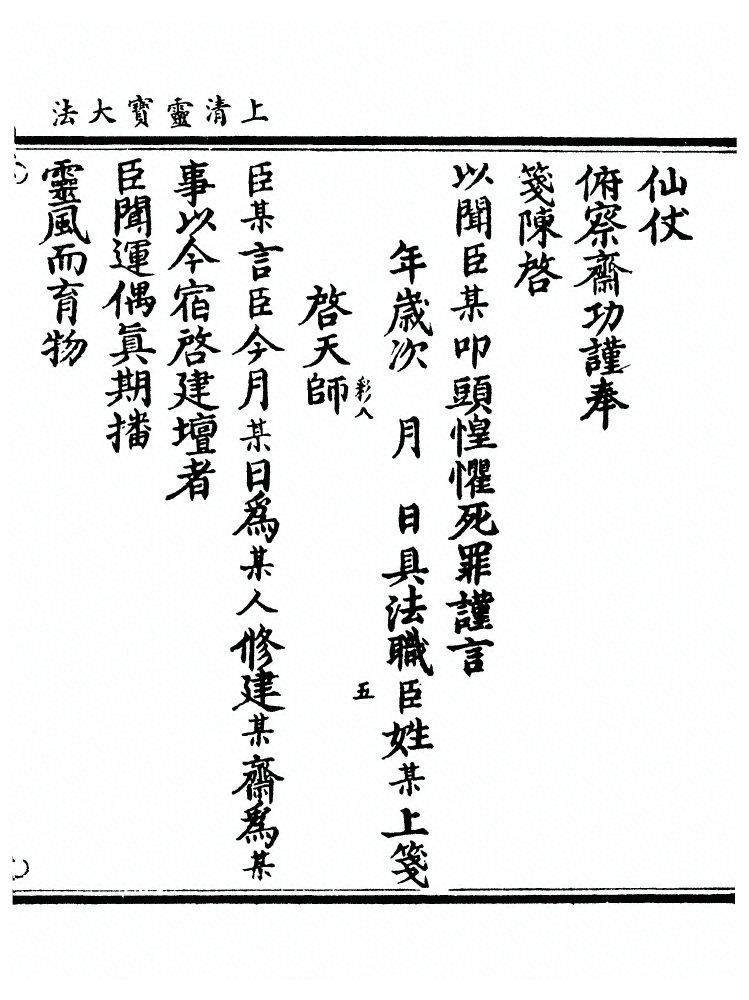 上清靈寶大法
仙仗
俯察齋功謹奉
箋陳啓
以聞臣某叩頭惶懼死罪謹言
年歲次　月　日具法職臣姓某上箋
啓天師
彩八
五
臣某言臣今月某日爲某人修建某齋爲某
事以今宿啓建壇者
臣聞運偶眞期播
靈風而育物